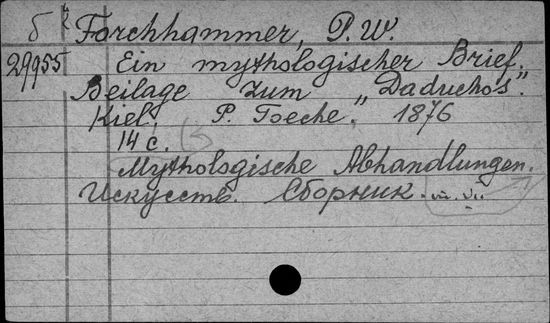 б Forchhammer, P. W.
29955 Ein mythologischer Brief.
Beilage zum „Daduchos".
Kiel. P. Toeche. 1876
14 с.
Mythologische Abhandlungen.
Искусств. Сборник.